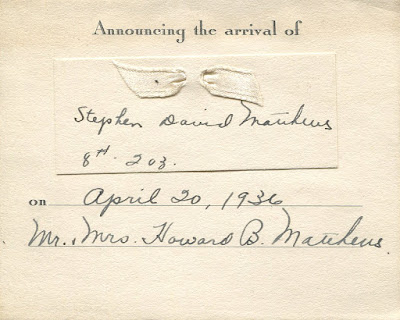 Announcing the arrival of
Stephen David Matthews
8 # 2 oz.
on April 20, 1936
Mr. Mrs. Howard B. Matthews